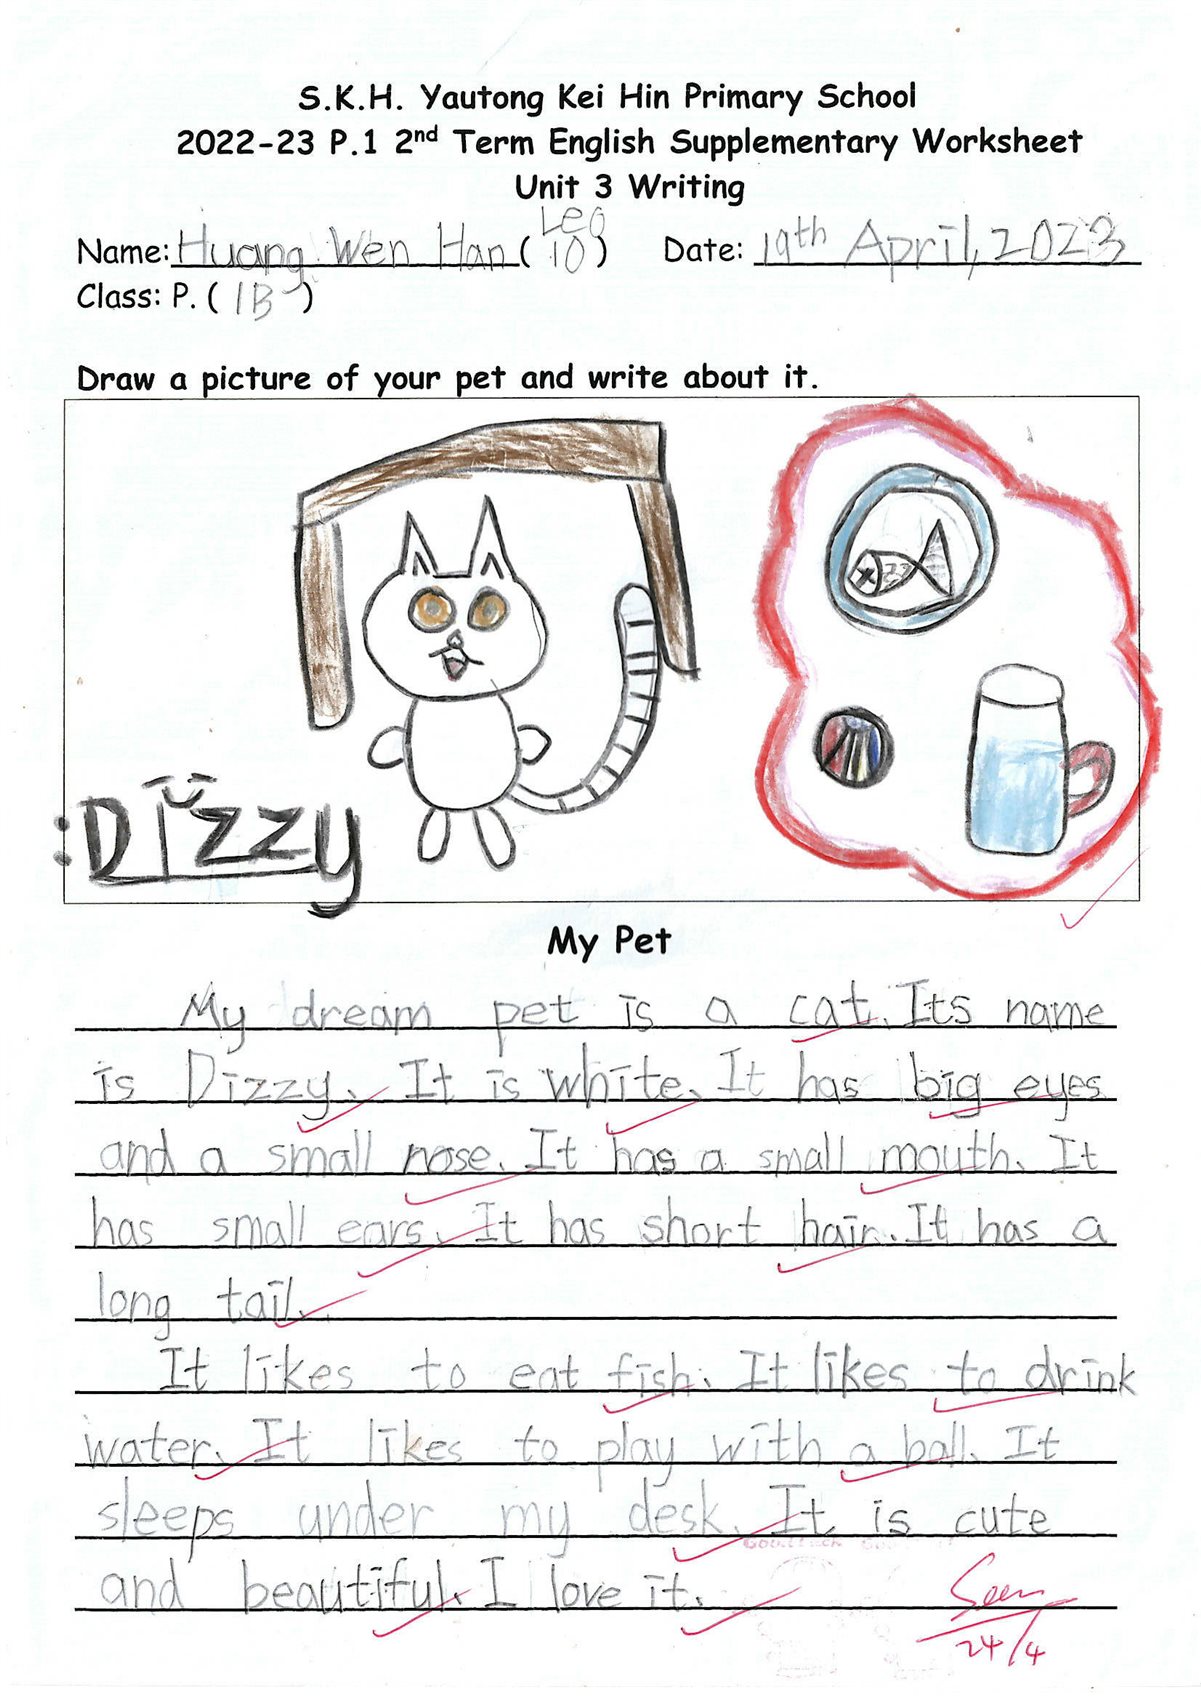 S.K.H. Yautong Kei Hin Primary School
2022-23 P.1 2nd Term English Supplementary Worksheet
Unit 3 Writing
Leo
Name: Huang Wen Han ( 10 ) Date: 19th April, 2023
Class: P. ( 1B )
Draw a picture of your pet and write about it.
:Dizzy
My Pet
My dream pet is a cat. Its name
is Dizzy. It is white. It has big eyes
and a small nose. It has a small mouth. It
has small ears. It has short hair. It has a
long tail.
It likes to eat fish. It likes to drink
water. It likes to play with a ball. It
sleeps under my desk. It is cute
and beautiful. I love it.
Seen
24/4